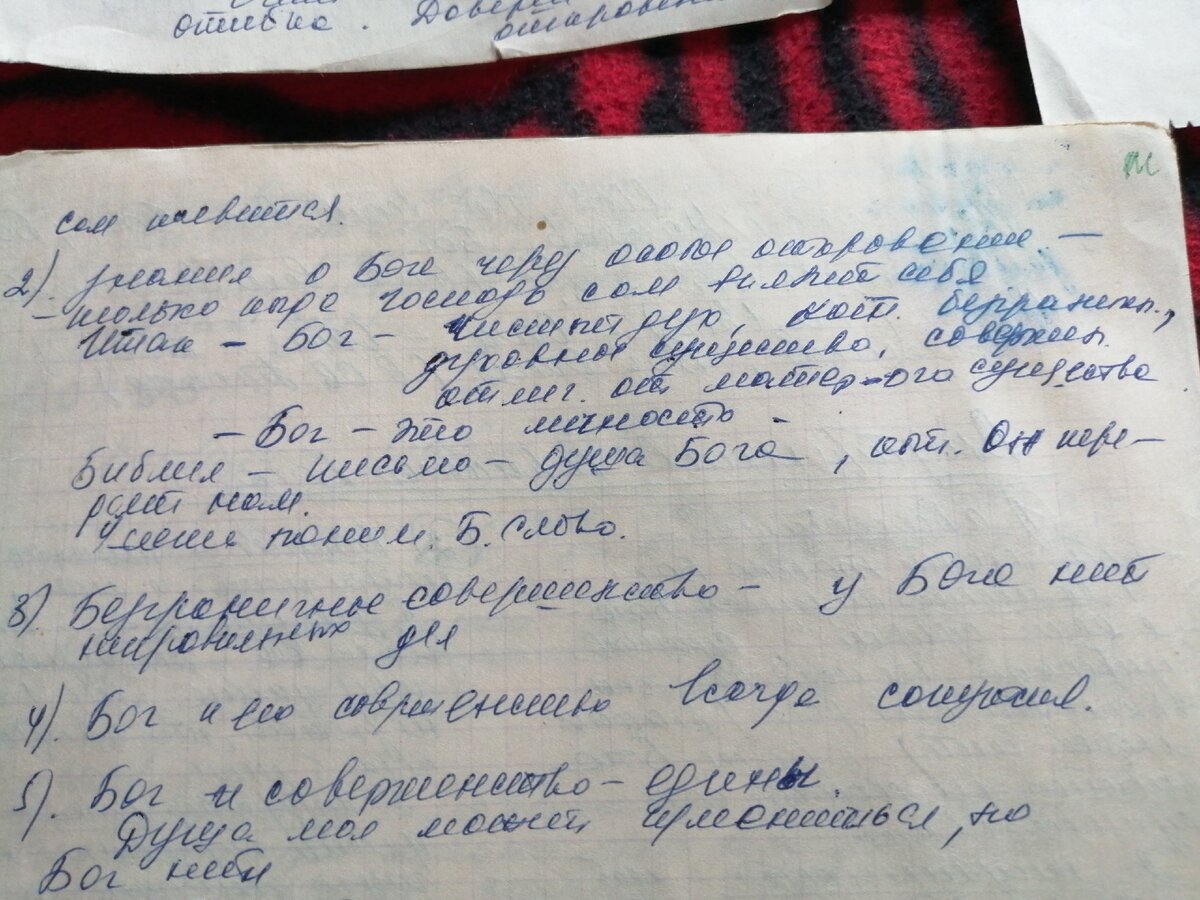 ошибка. Довер
откровен
сам явится.
2). Знания о Боге через особые откровения —
– только где Господь сам явит себя
Итак – Бог – чистый дух, кот. безгранич.,
духовное существо, соверш.
отлич. от матер-ого существа
– Бог – это личность –
Библия – письмо – душа Бога, кот. Он пере–
дает нам.
поним. Б. Слово.
3) Безграничные совершенство – у Бога нет
неправильных дел
4). Бог и его совершенство всегда
5). Бог и совершенство – едины.
Душа моя может измениться, но
Бог нет